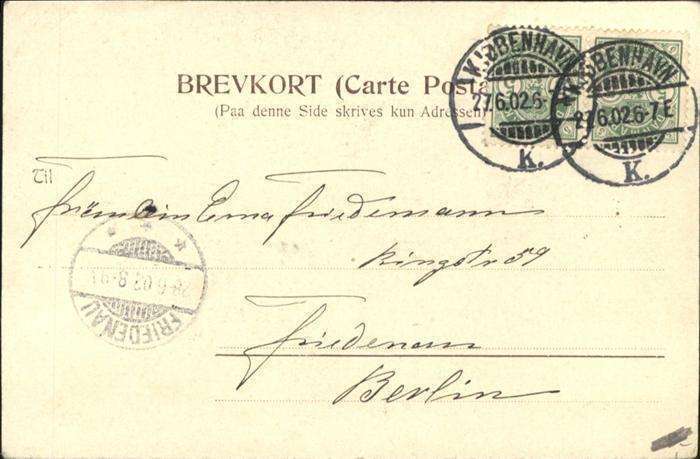 BREVKORT (Carte Posta
(Paa denne Side skrives kun Adressen)
KJØBENHAVN
27.6.02.6-
K.
KJØBENHAVN
27.6.02.6-7E
K.
Til
Fräulein Erna Friedemann
Ringstr 59
Friedenau
Berlin
FRIEDENAU